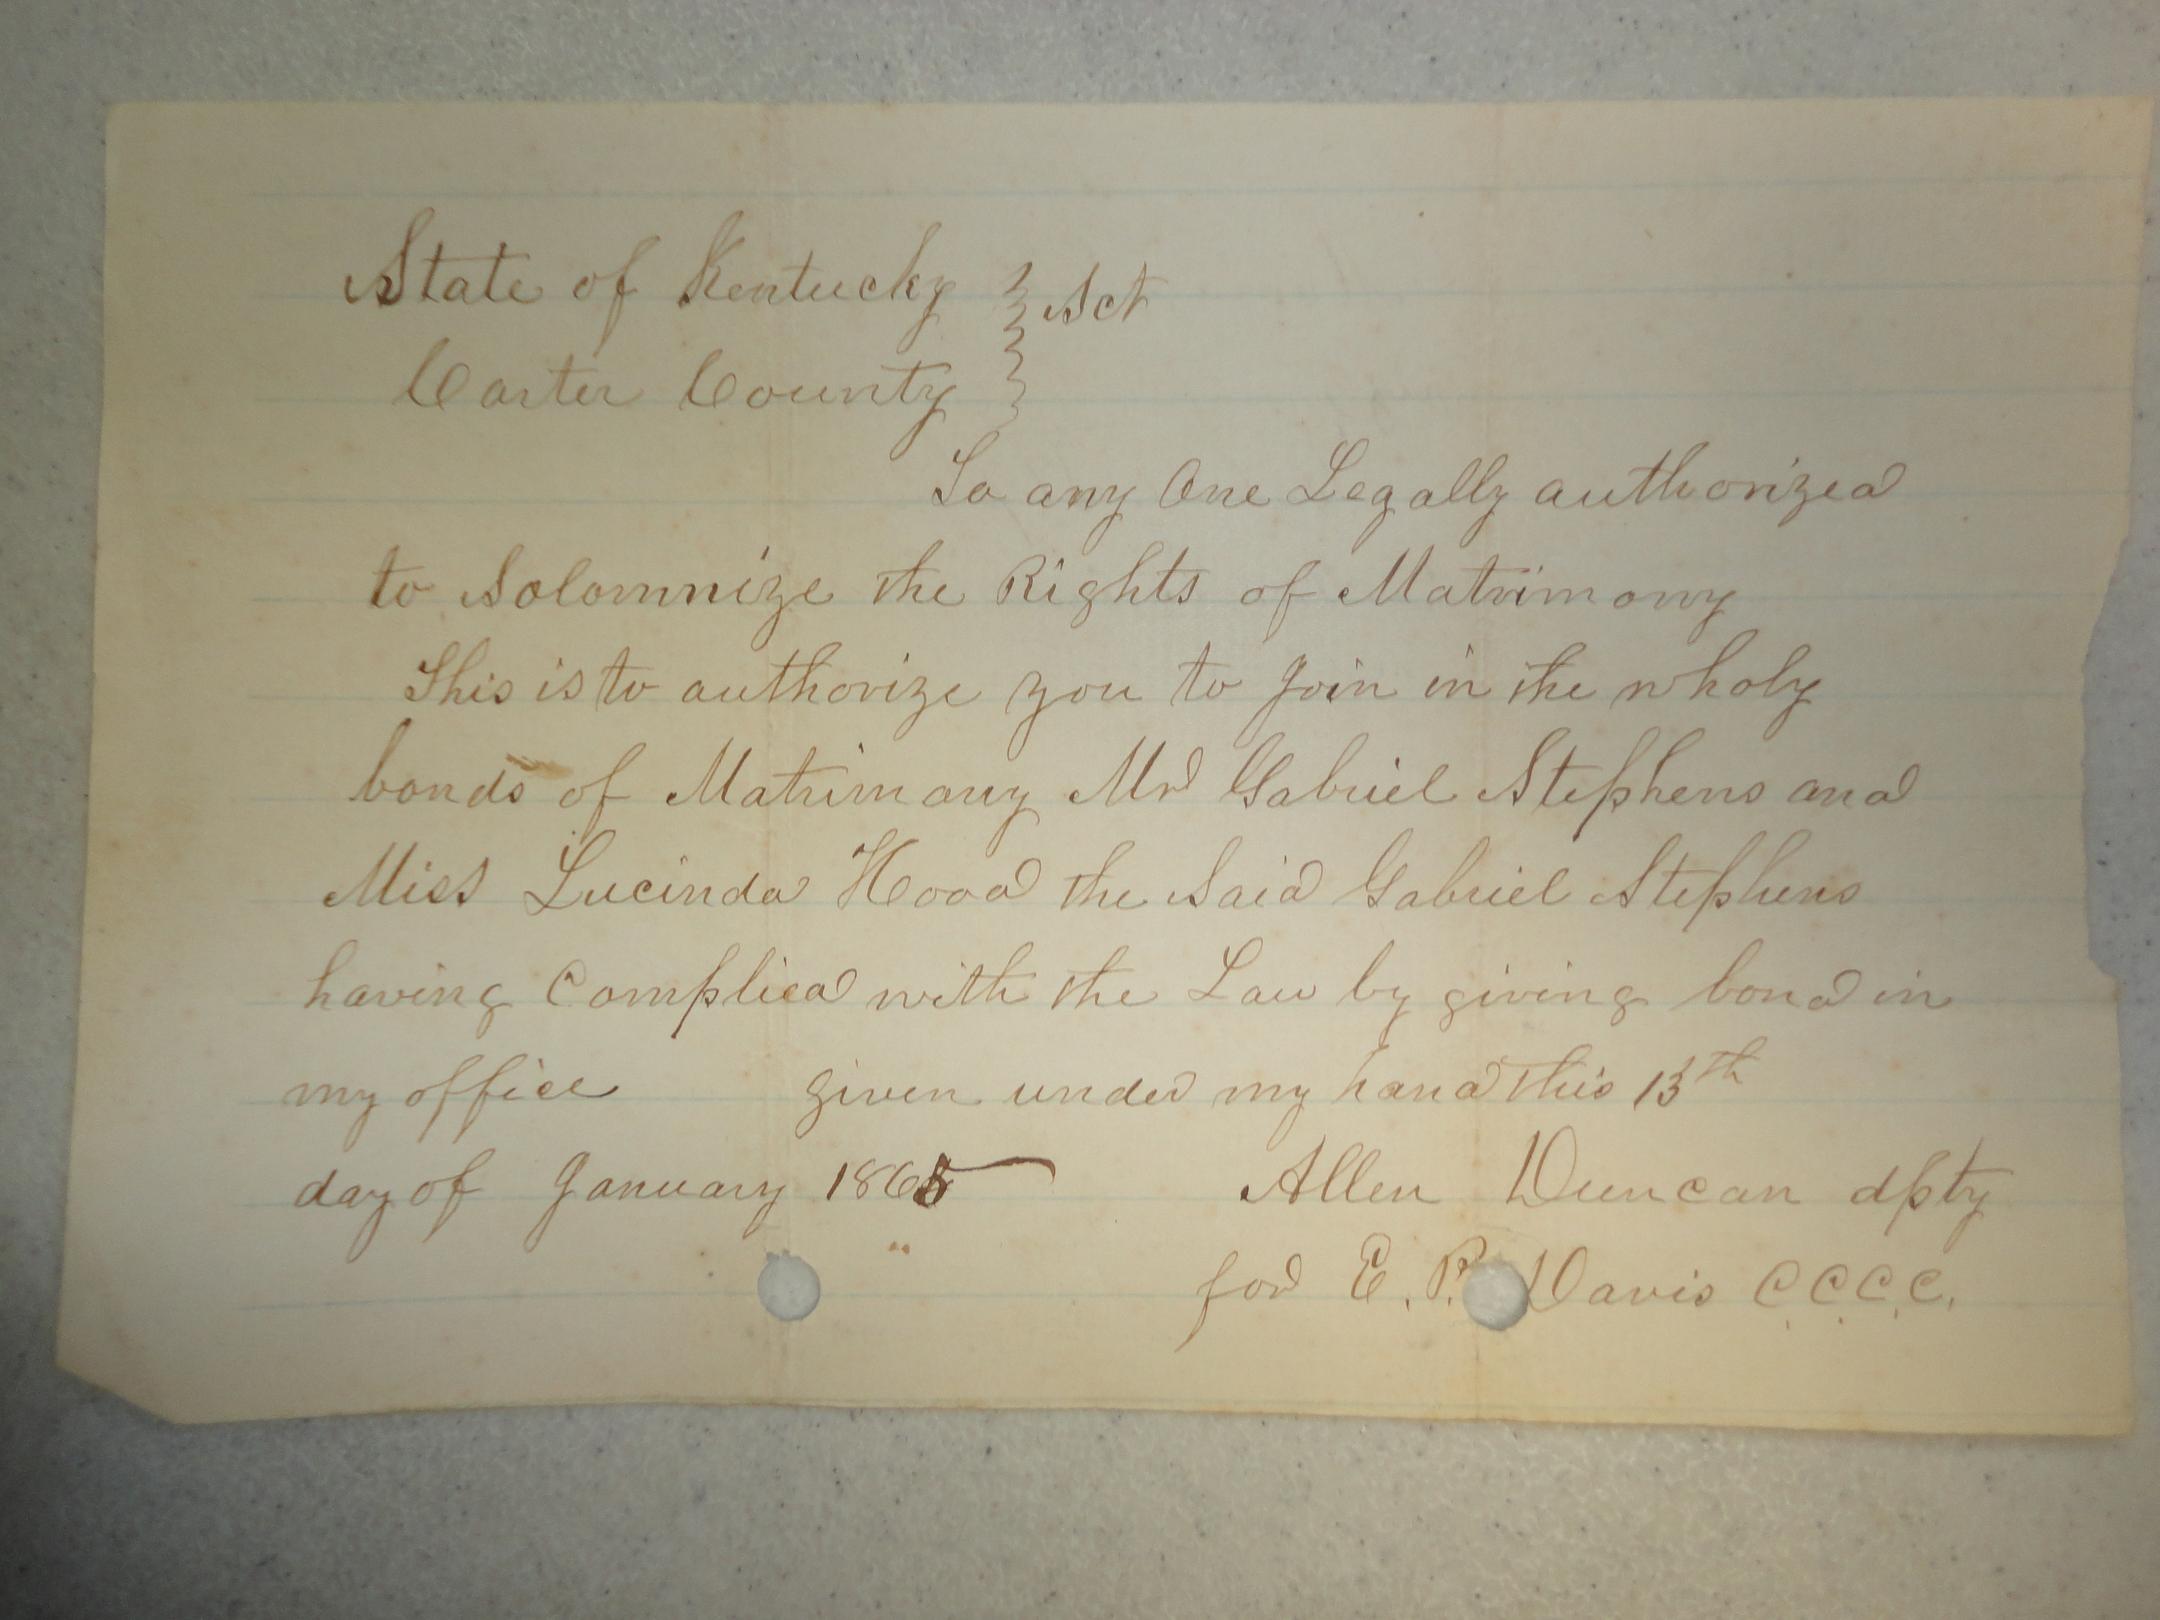 State of Kentucky } Sct
Carter County
To any One Legally authorized
to Solomnize the Rights of Matrimony
This is to authorize you to Join in the wholy
bonds of Matrimony Mr Gabriel Stephens and
Miss Lucinda Hood the Said Gabriel Stephens
having Complied with the Law by giving bond in
my office given under my hand this 13th
day of January 1865
Allen Duncan dpty
for E. P. Davis C.C.C.C.